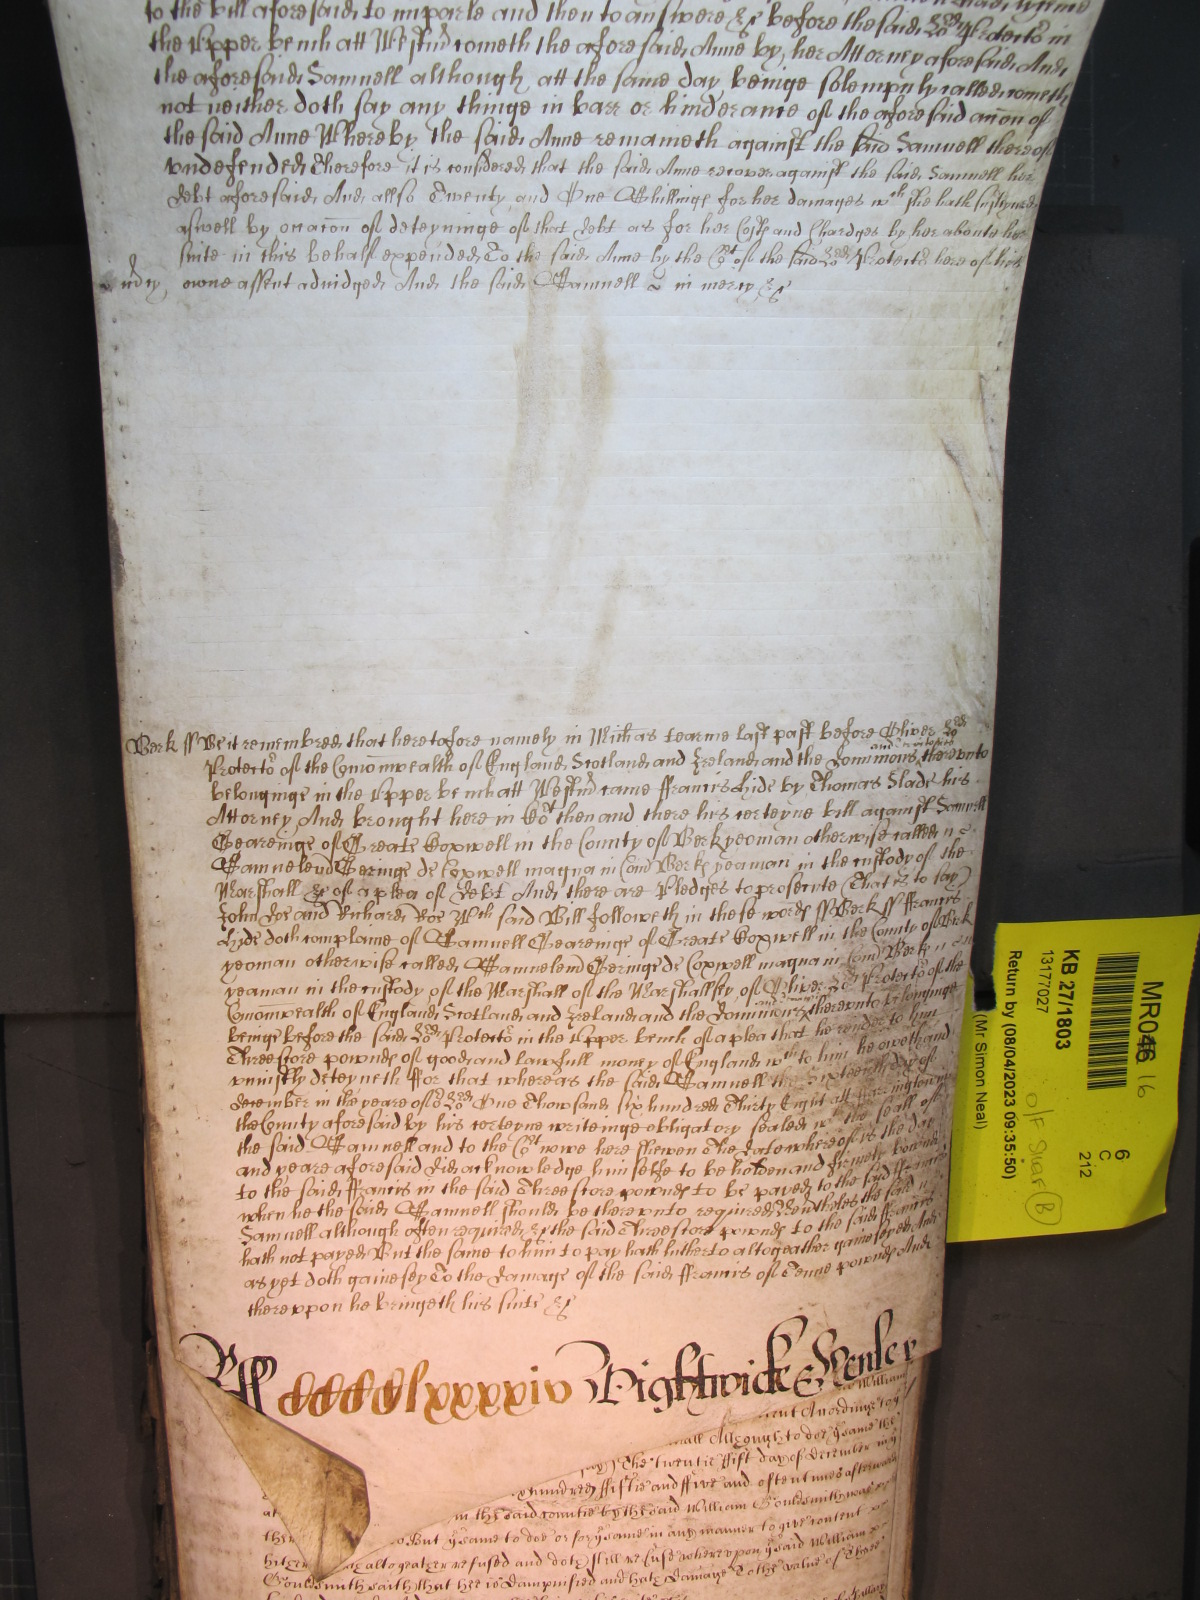 to the bill aforesaid to imparle and then to answere &c before the said Lo: Protector in
the Upper bench att Westmr cometh the aforesaid Anne by her Attorney aforesaid And
the aforesaid Samuell although att the same day beinge solempnly called cometh
not neither doth say any thinge in barr or hinderance of the aforesaid accon of
the said Anne Whereby the said Anne remaineth against the said Samuell thereof
undefended Therefore it is considered that the said Anne recover against the said Samuell her
debt aforesaid And allso Twenty and One Shillings for her damages wch she hath susteyned
aswell by occacon of deteyninge of that debt as for her Costs and Chardges by her aboute her
suite in this behalf expended To the said Anne by the Cort of the said Lord Protector here of her
owne assent adiudged And the said Samuell in mercy &c
Berk ss Be it remembred that heretofore namely in Michas tearme last past before Oliver Lord
Protector of the Comonwealth of England Scotland and Ireland and the Dominions thereunto
belonginge in the Upper bench att Westmr came ffrancis Hide by Thomas Slade his
Attorney And brought here in Cort then and there his certeyne bill against Samuell
Gearinge of Greate Coxwell in the County of Berk yeoman otherwise called
Samuelem Geringe de Coxwell magna in Com Berk yeaman in the custody of the
Marshall &c of a plea of debt And there are Pledges to prosecute (That is to say)
John Doe and Richard Roe Wch said Bill followeth in these words ss Berk ss ffrancis
Hyde doth complaine of Samuell Gearinge of Greate Coxwell in the County of Berk
yeoman otherwise called Samuelem Geringe de Coxwell magna in Com Berk
yeaman in the custody of the Marshall of the Marshallsey of Oliver Lord Protector of the
Comonwealth of England Scotland and Ireland and the Dominions thereunto belonginge
beinge before the said Lord Protector in the Upper bench of a plea that he render to him
Threescore pownds of good and lawfull money of England wch to him he oweth and
uniustly deteyneth ffor that whereas the said Samuell the Sixteenth day of
December in the yeare of or Lord One Thowsand six hundred Thirty Eight att ffarringdon in
the County aforesaid by his certeyne writeinge obligatory sealed wth the seall of
the said Samuell and to the Cort nowe here shewen The date whereof is the day
and yeare aforesaid did acknowledge himselfe to be holden and firmely bound
to the said ffrancis in the said Threescore pownds to be payed to the said ffrancis
when he the said Samuell should be thereunto required Neverthelesse the said
Samuell although often required &c the said Threescore pownds to the said ffrancis
hath not payed But the same to him to pay hath hitherto altogeather gainesayed And
as yet doth gainesey To the damage of the said ffrancis of Tenne pownds And
thereuppon he bringeth his suite &c
Wightwicke Henley
William
Accordinge to
Although to doe ysame the
say) The twentie ffift day of december in
hundred ffiftie and ffive and often times afterward
in the said countie by the said William Gouldsmith was
But ysame to doe or for ysame in any manner to give content
altogeather refused and doth still refuse whereupon ysaid William
Gouldsmith saith that hee is dampnified and hath damage To the value of Three
MR046 16
KB 27/1803
13177027
Return by (08/04/2023 09:35:50)
(Mr Simon Neal)
6
C
212
O/F Shelf B